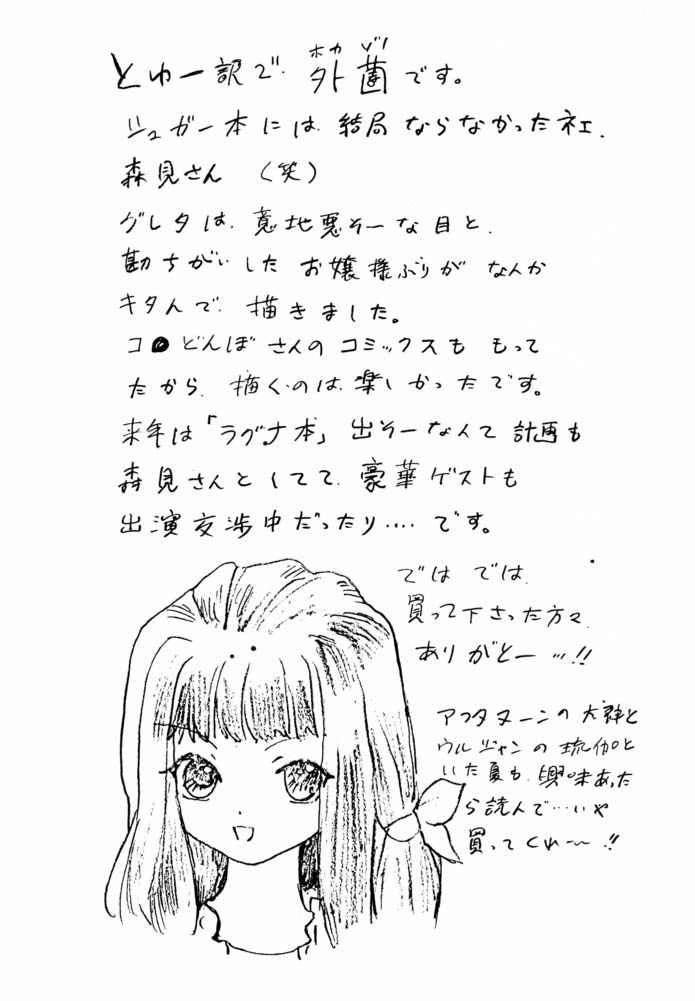 とゆー訳で、外薗です。
ホカ ゾノ
シュガー本には、結局 ならなかったネェ、
森見さん (笑)
グレタは、意地悪そーな目と、
勘ちがいした お嬢様ぶりが なんか
キタんで、描きました。
コ●どんぼさんのコミックスも もって
たから、描くのは、楽しかったです。
来年は「ラグナ本」出そーなんて 計画も
森見さんとしてて、豪華ゲストも
出演交渉中だったり‥‥です。
では では、
買って下さった方々、
ありがとー …!!
アフタヌーンの 犬神と
ウルジャンの 琉伽と
いた夏も、興味あった
ら読んで…いや
買ってくれ〜!!